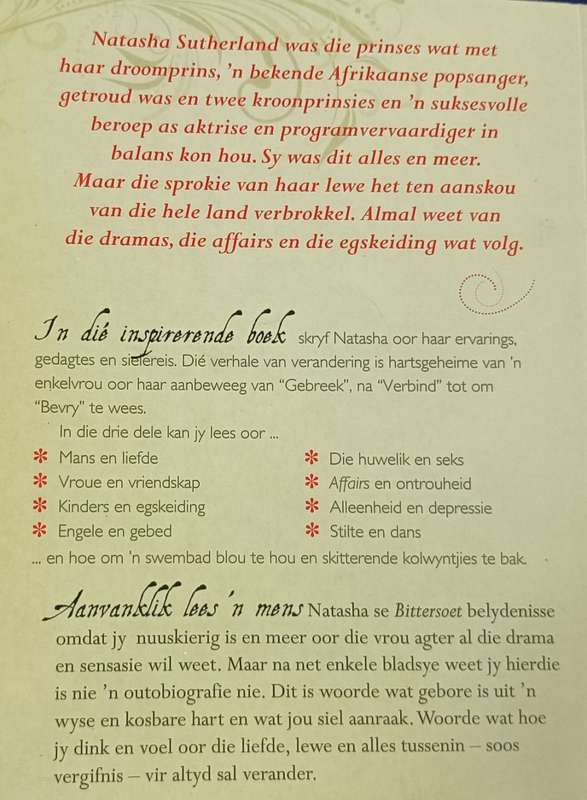 Natasha Sutherland was die prinses wat met
haar droomprins, 'n bekende Afrikaanse popsanger,
getroud was en twee kroonprinsies en 'n suksesvolle
beroep as aktrise en programvervaardiger in
balans kon hou. Sy was dit alles en meer.
Maar die sprokie van haar lewe het ten aanskou
van die hele land verbrokkel. Almal weet van
die dramas, die affairs en die egskeiding wat volg.
In dié inspirerende boek skryf Natasha oor haar ervarings,
gedagtes en sielereis. Dié verhale van verandering is hartsgeheime van 'n
enkelvrou oor haar aanbeweeg van "Gebreek", na "Verbind" tot om
"Bevry" te wees.
In die drie dele kan jy lees oor ...
* Mans en liefde
* Vroue en vriendskap
* Kinders en egskeiding
* Engele en gebed
* Die huwelik en seks
* Affairs en ontrouheid
* Alleenheid en depressie
* Stilte en dans
... en hoe om 'n swembad blou te hou en skitterende kolwyntjies te bak.
Aanvanklik lees 'n mens Natasha se Bittersoet belydenisse
omdat jy nuuskierig is en meer oor die vrou agter al die drama
en sensasie wil weet. Maar na net enkele bladsye weet jy hierdie
is nie 'n outobiografie nie. Dit is woorde wat gebore is uit 'n
wyse en kosbare hart en wat jou siel aanraak. Woorde wat hoe
jy dink en voel oor die liefde, lewe en alles tussenin – soos
vergifnis – vir altyd sal verander.